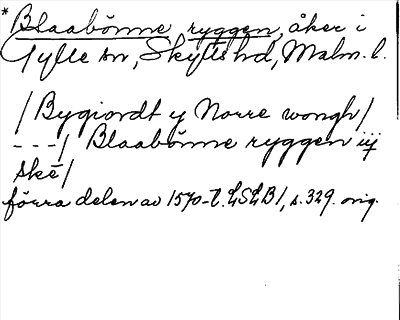 *Blaabönne ryggen, åker i
Gylle sn, Skytts hd, Malm. l.
/Bygiordt y Norre wongh/
---/ Blaabönne ryggen iij
skē/
förra delen av 1570-t. LSLB1, s. 329. orig.